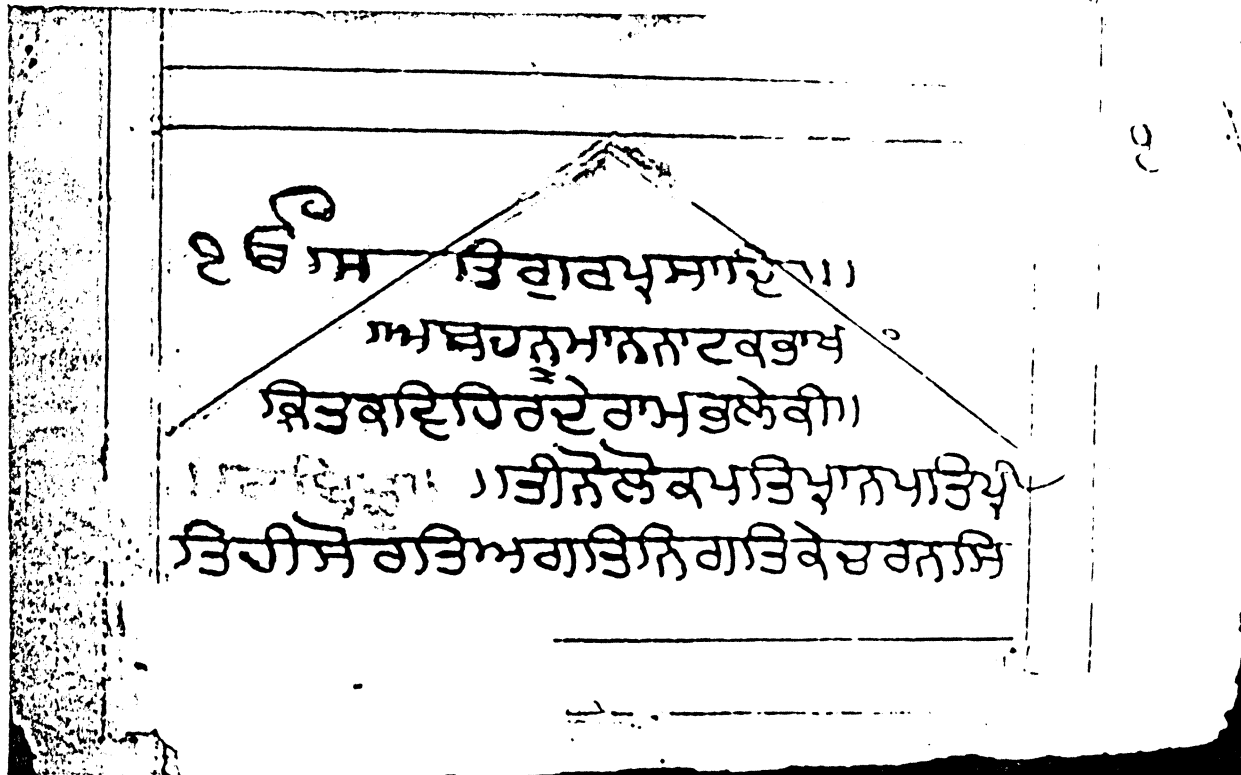 ੴ ਸਤਿਗੁਰਪ੍ਰਸਾਦਿ॥
॥ਅਥਹਨੂਮਾਨਨਾਟਕਭਾਖ
ਕ੍ਰਿਤਕਵਿਹਿਰਦੇਰਾਮਭਲੇਕੀ॥
॥ਤੀਨੋਲੋਕਪਤਿਪ੍ਰਾਨਪਤਿਪ੍ਰੀ
ਤਿਹੀਮੋਰਤਿਅਗਤਿਨਿਗਤਿਕੇਚਰਨਸਿ